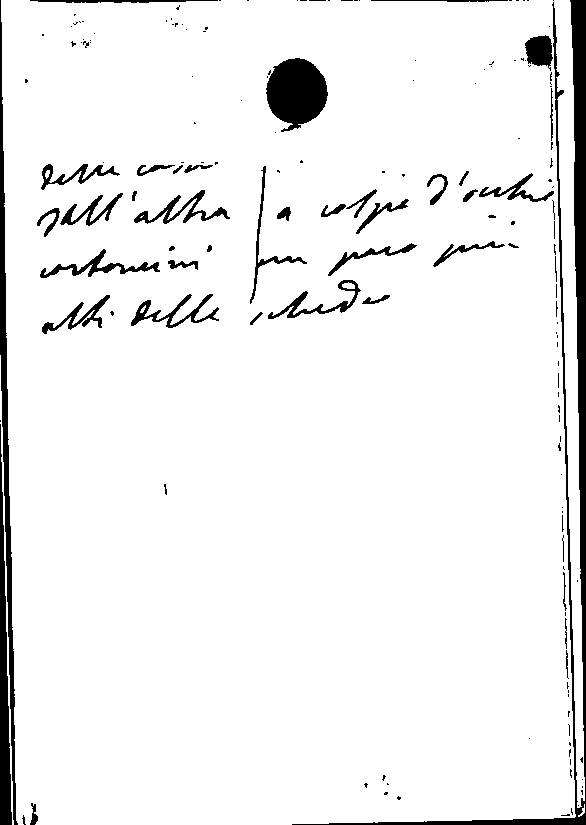 delle casse
dall'altra a colpo d'occhio
cartoncini un poco più
alti delle schede